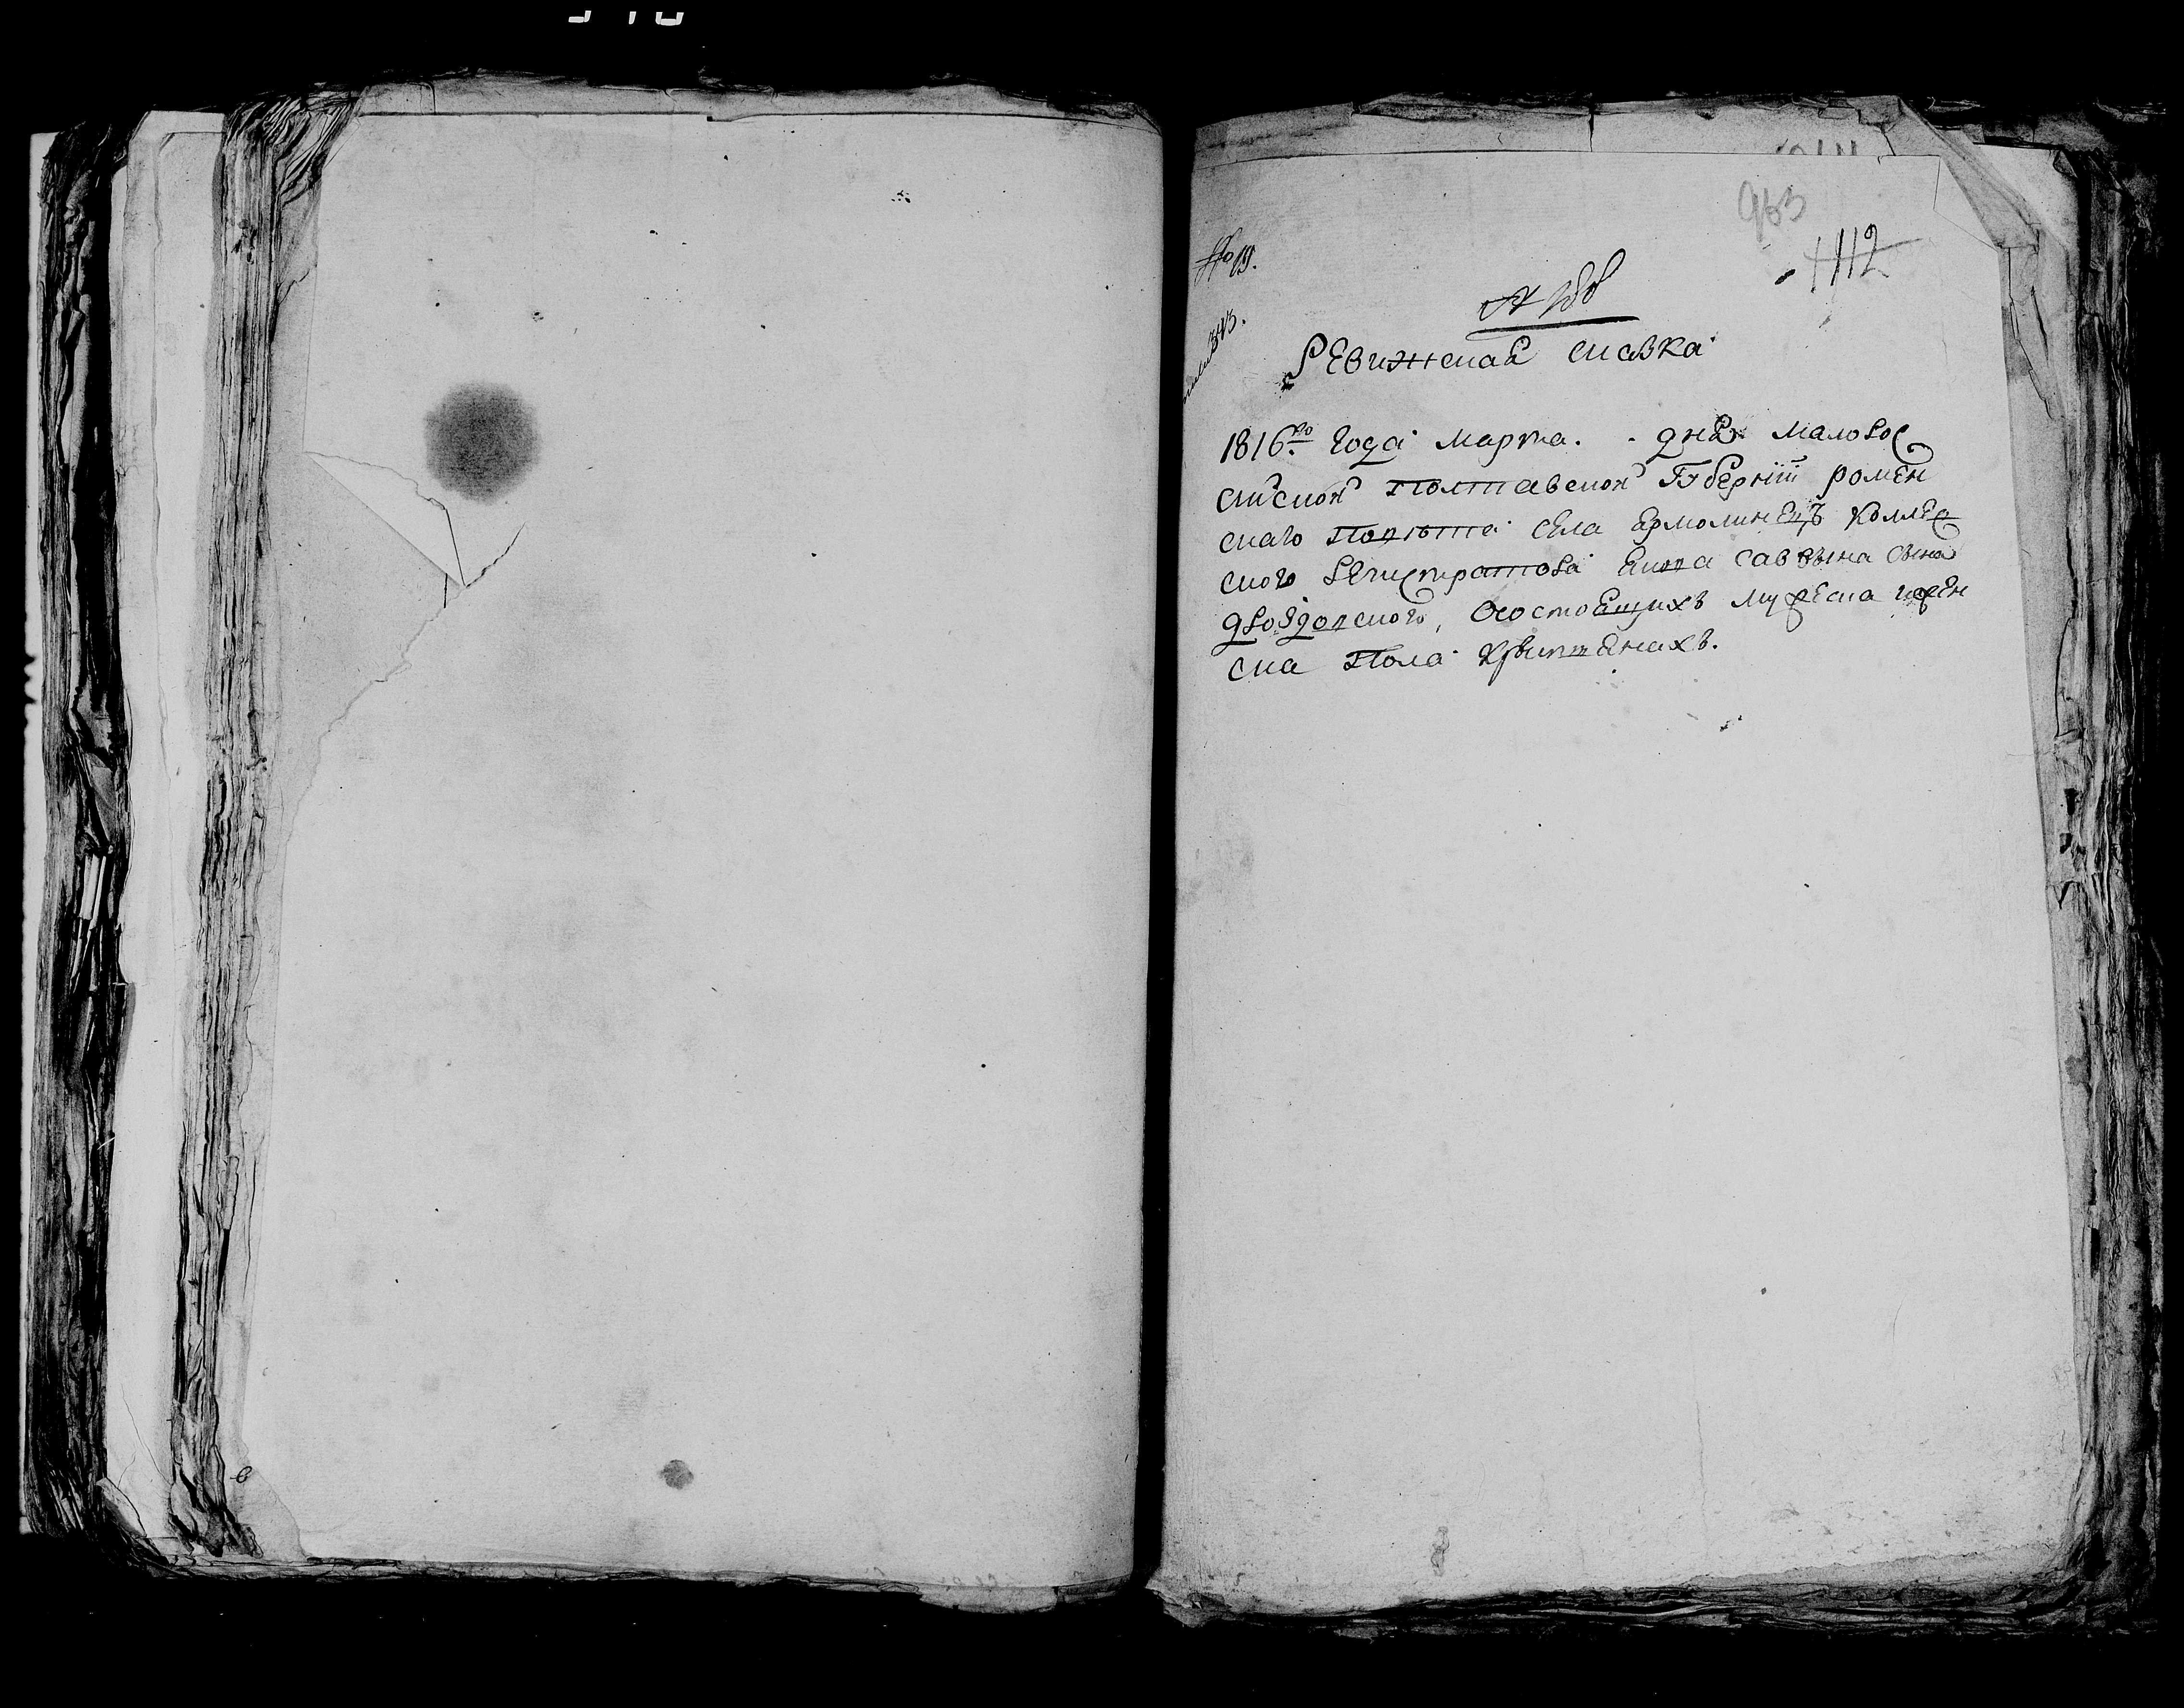 963
1112
Ревижская скаска
1816го года марта. дня малорос
сийской Полтавской Губернїи ромен
скаго повѣта села Ярмолинецъ коллез
ского регистратора Якова саввына сына
дроздовского, осостоящихъ мужеска ижен
ска пола крыстянахъ.